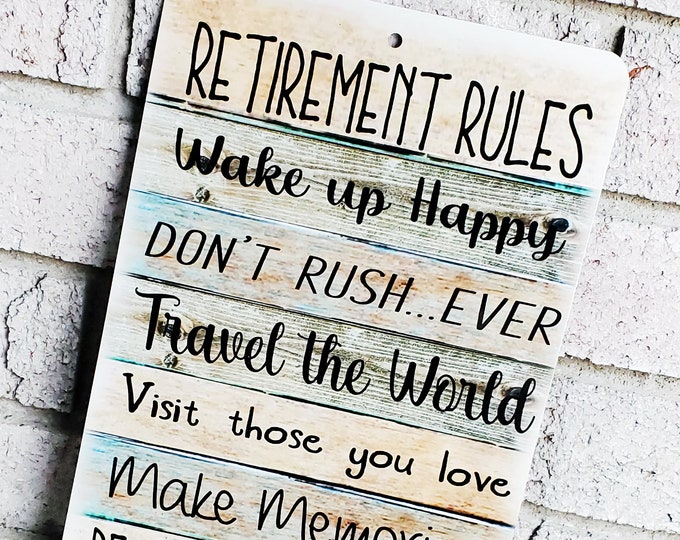 RETIREMENT RULES
Wake up Happy
DON'T RUSH...EVER
Travel the World
Visit those you love
Make